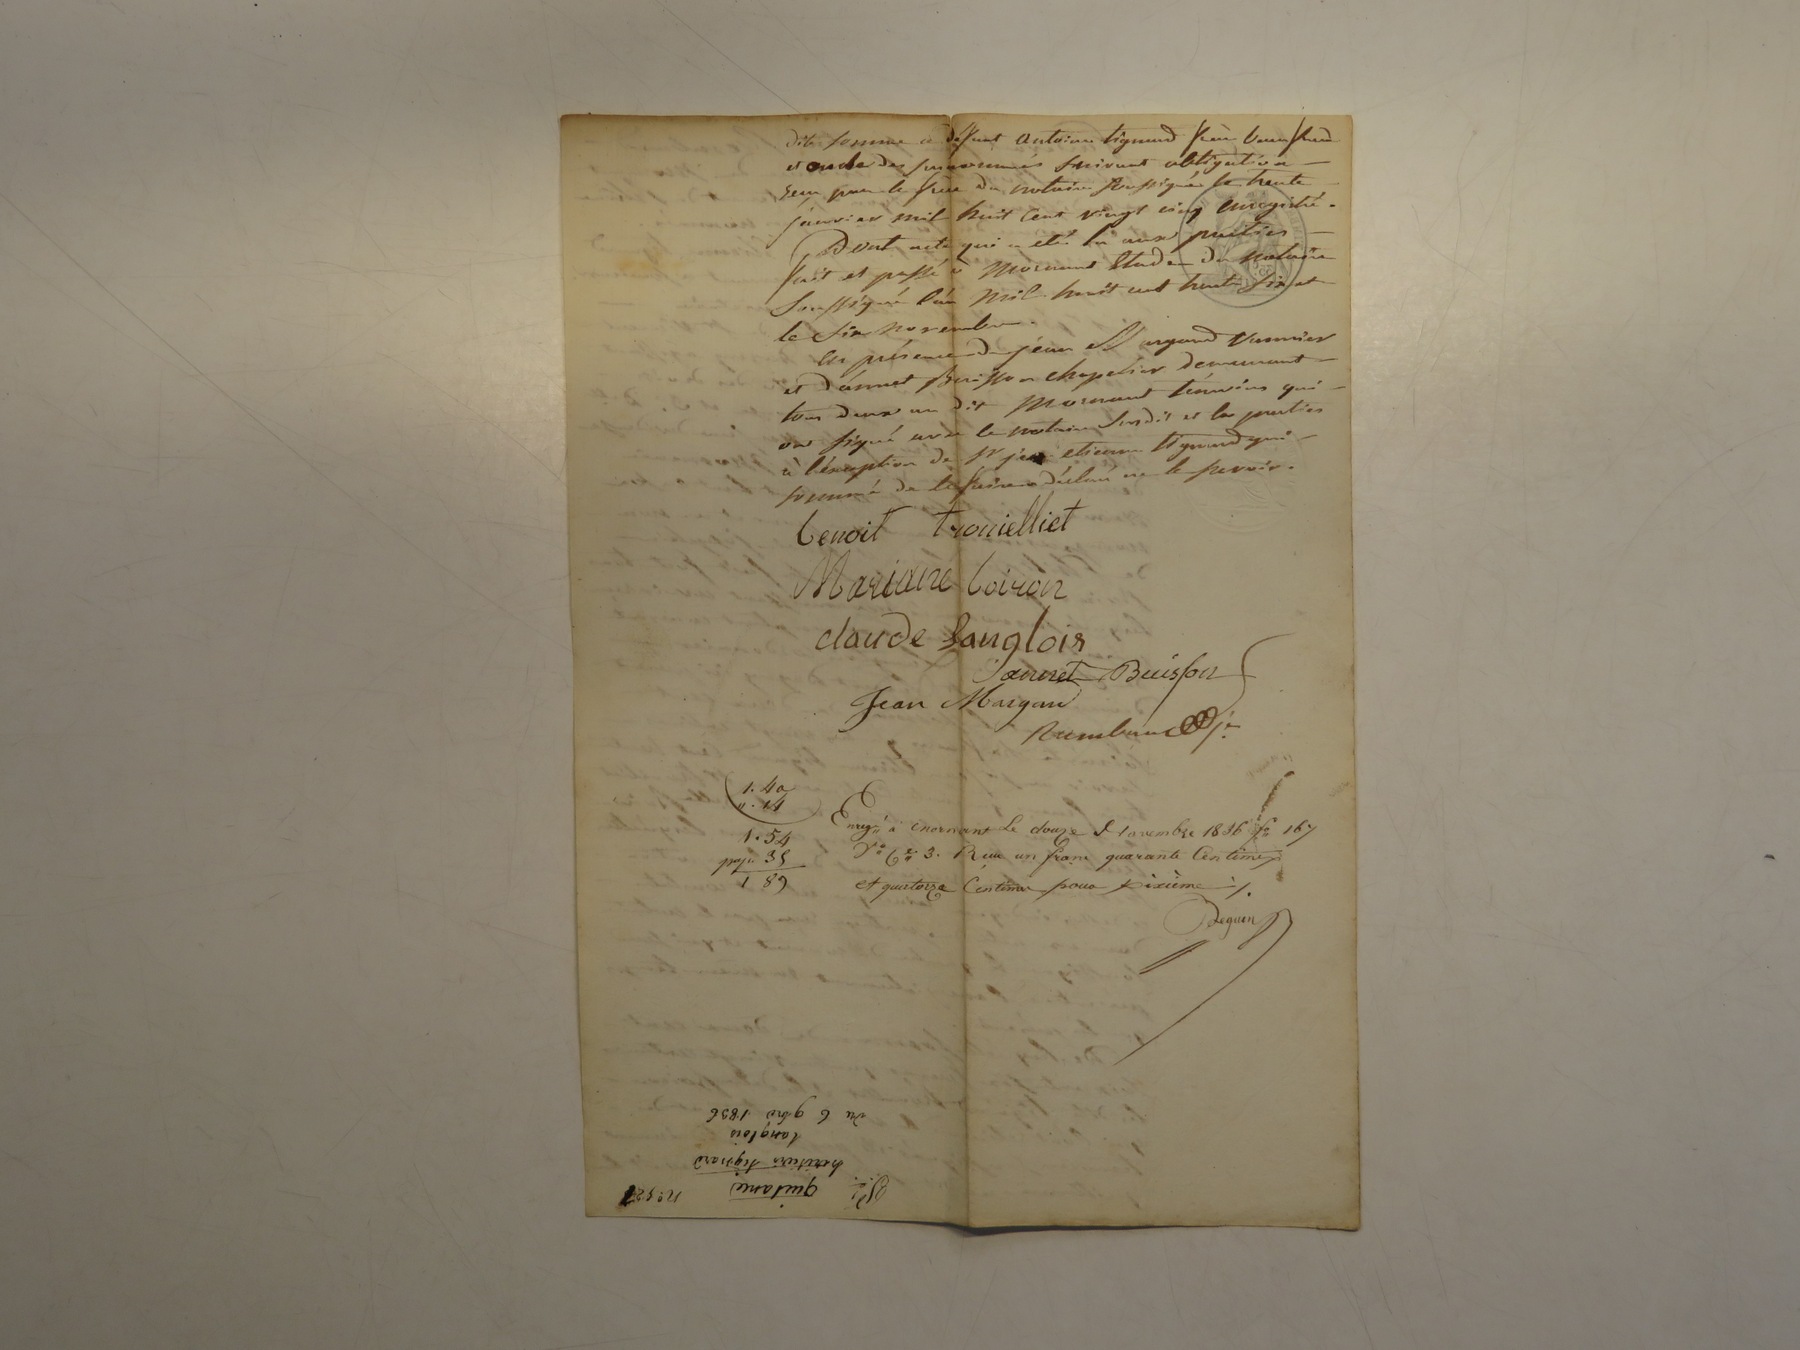 dite somme à défunt antoine tignard frère beau frère
et oncle des surnommés suivant obligation
reçu par le père du notaire soussigné le trente
janvier mil huit cent vingt cinq enregistré.
Dont acte qui a été lu aux parties
fait et passé à Mornant Etude du notaire
soussigné l'an mil huit cent trente six et
le six novembre.
en présence de jean Margand vannier
et Buisson chapelier demeurant
tous deux au dit Mornant témoins qui
ont signé avec le notaire susdit et les parties
à l'éxception de sr jean etienne tignard qui
sommé de le faire a déclaré ne le savoir.
benoit trouielliet
Mariane boiron
claude langlois
Buisson
Jean Margan
je
1. 40
". 14
1. 54
papr 35
1 89
Enregé à mornant Le douze Novembre 1836 fo 167
Vo Ce 3. Reçu un franc quarante Centimes
et quatorze Centimes pour dixième /.
Deguen
Pd.
quitance
héritiers tignard
langlois
du 6 9bre 1836